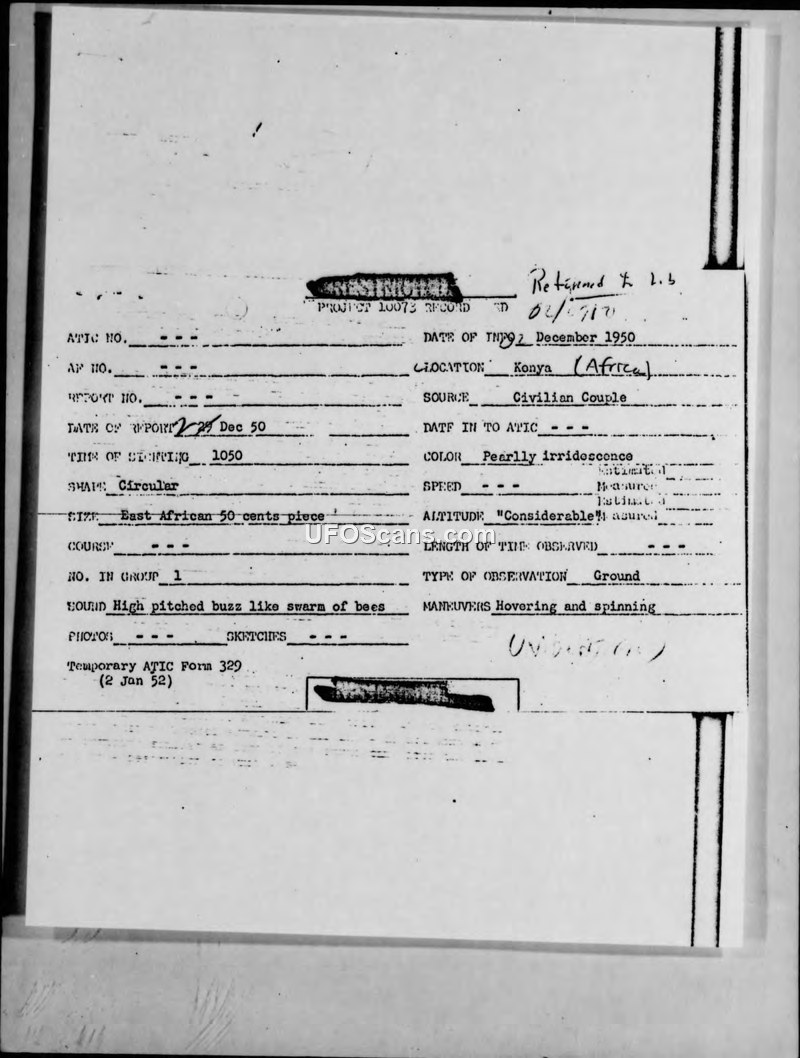 Returned to
PROJECT 10073 RECORD
ATIC NO. - - -
DATE OF December 1950
AF NO. - - -
LOCATION Konya (Africa)
REPORT NO. - - -
SOURCE Civilian Couple
DATE OF REPORT Dec 50
DATE IN TO ATIC - - -
TIME OF SIGHTING 1050
COLOR Pearlly irridescence
Estimated
SHAPE Circular
SPEED - - - Measured
Estimated
SIZE East African 50 cents piece
ALTITUDE "Considerable" Measured
UFOScans.com
COURSE - - -
LENGTH OF TIME OBSERVED - - -
NO. IN GROUP 1
TYPE OF OBSERVATION Ground
SOUND High pitched buzz like swarm of bees
MANEUVERS Hovering and spinning
PHOTOS - - - SKETCHES - - -
Temporary ATIC Form 329
(2 Jan 52)